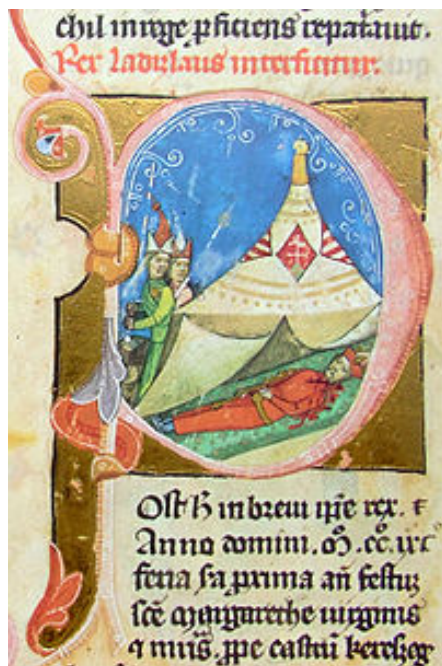 chil in rege p̲ficiens repatauit.
Rex ladizlaus interficitur.
Ost h̄ in breui ip̄e rex.
Anno domini. m̊. cc̊. lxc
feria s̄a prima an̄ festuȝ
sc̄e margarethe uirginis
ꝛ mr̄is. ꝓpe castrū kereszeg